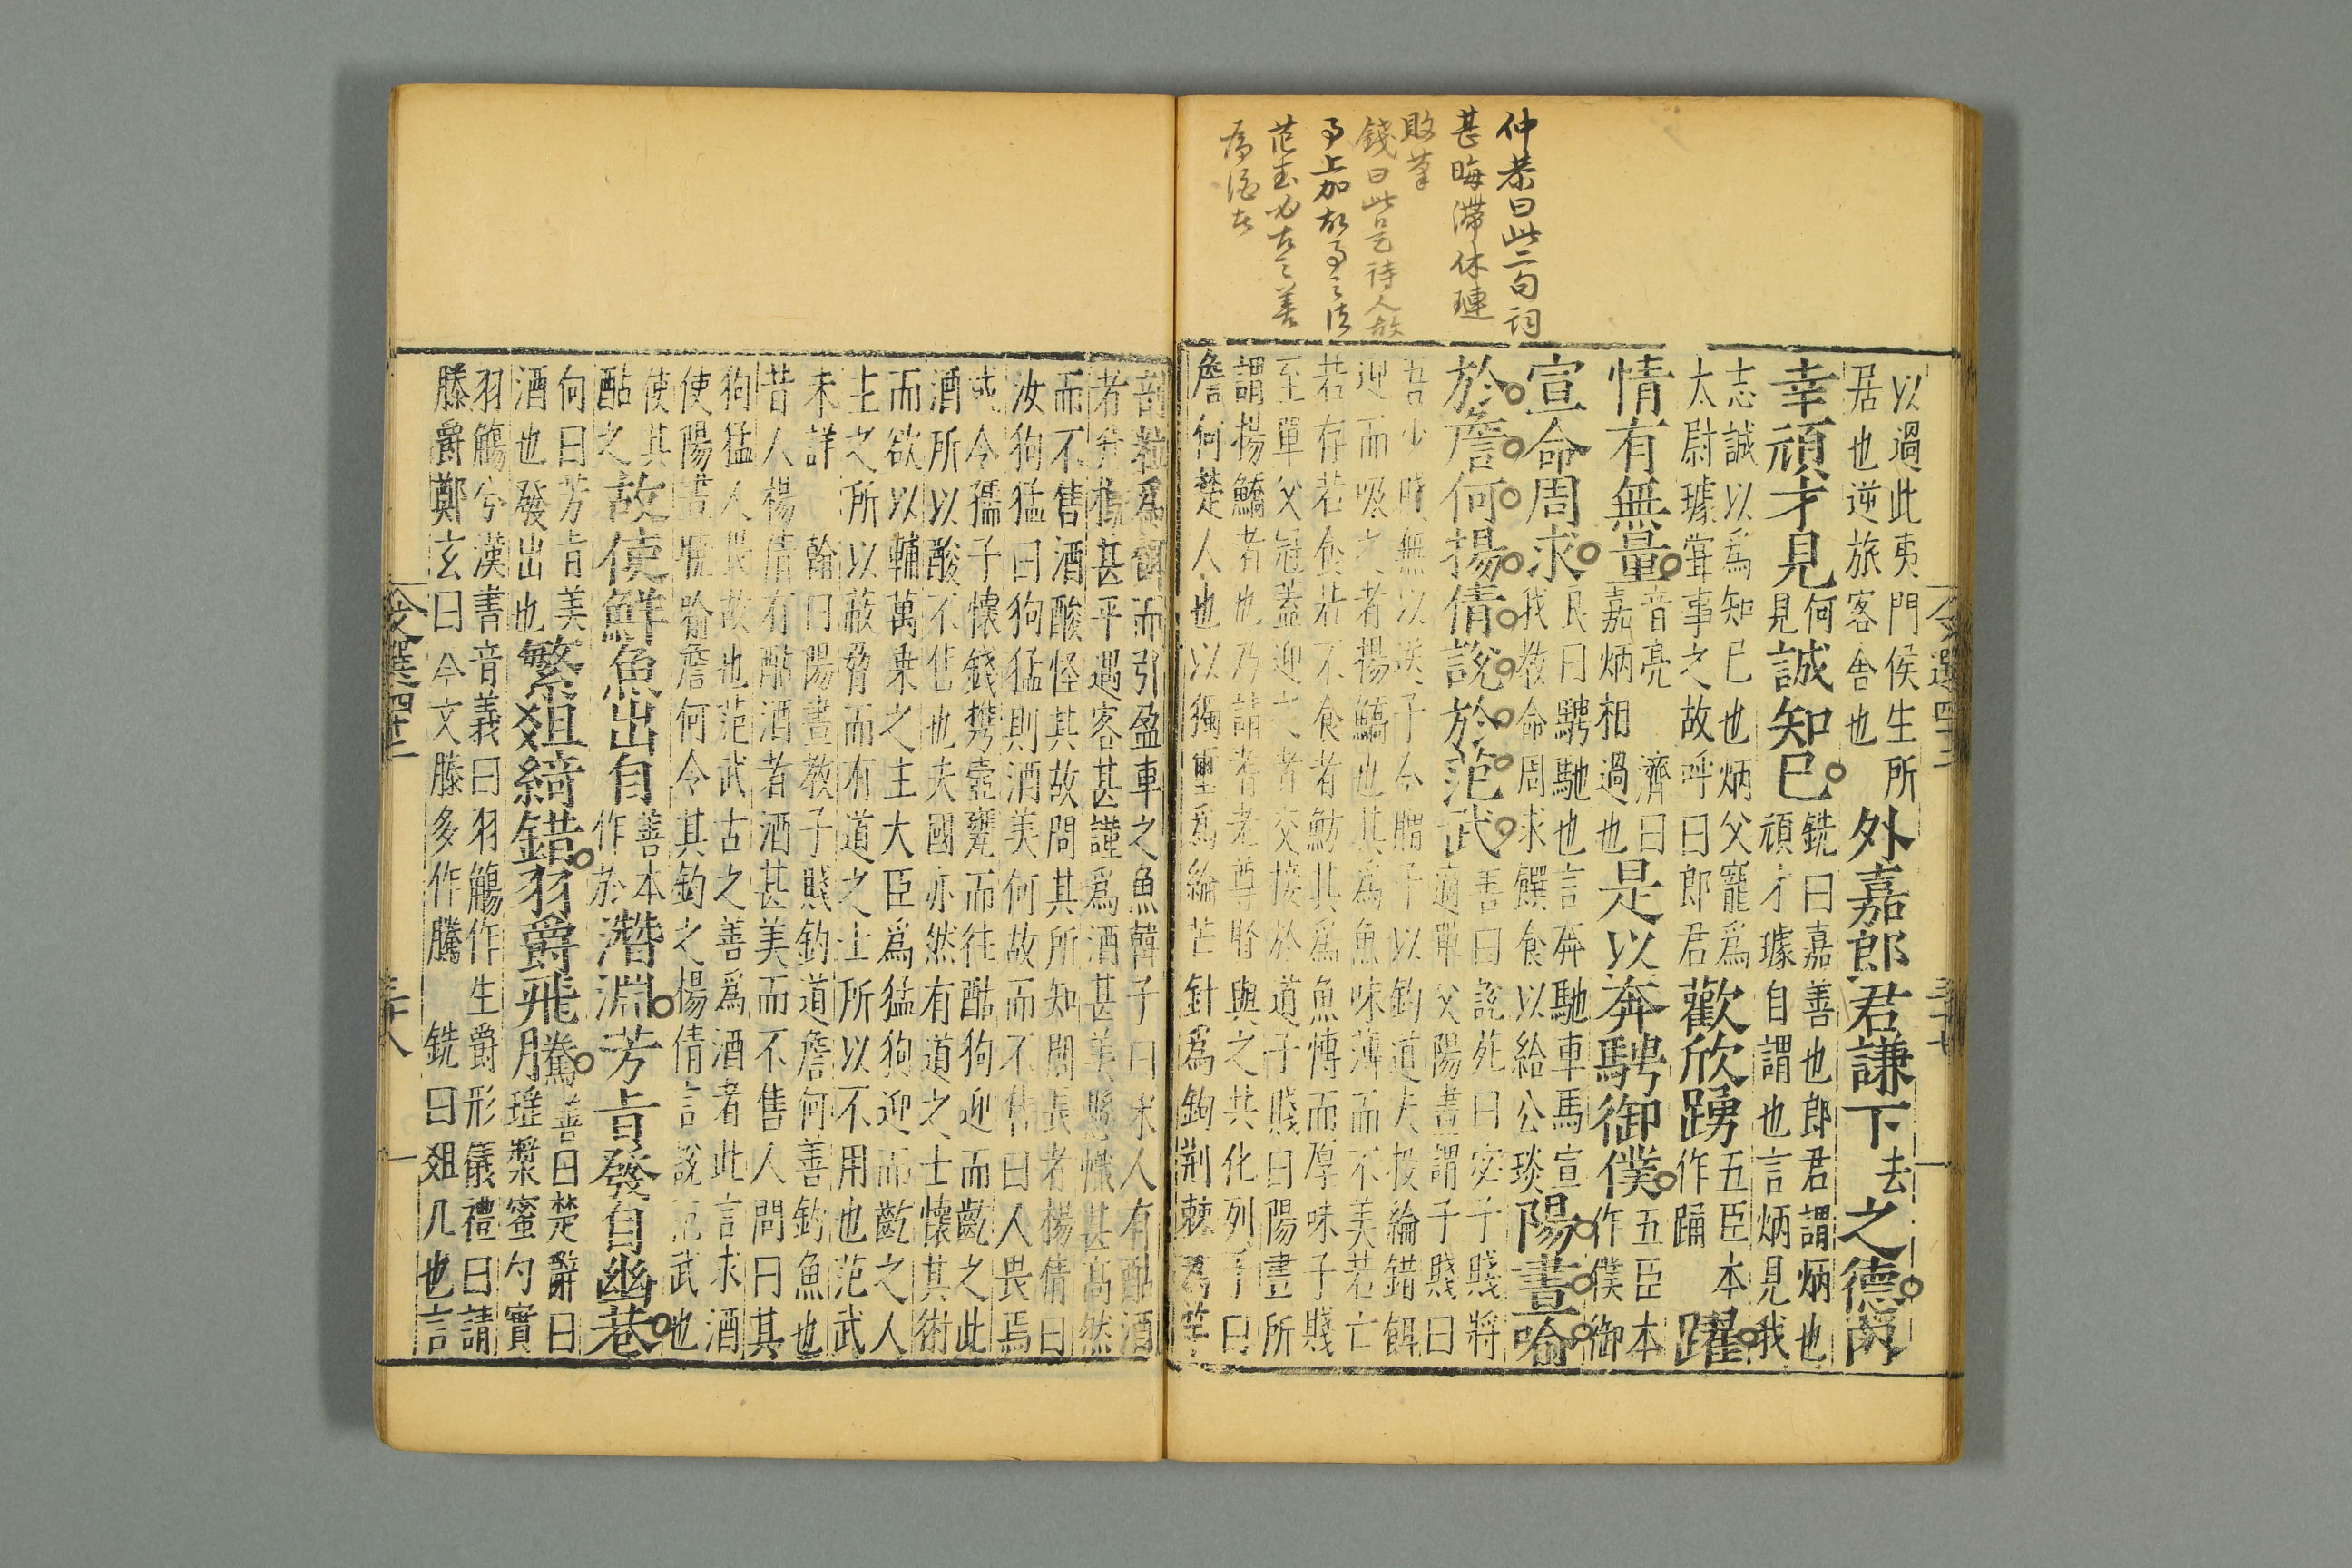 仲恭曰此二句詞
甚晦滯休璉
敗筆
錢曰此是待人故
事上加故事之法
范武必古之善
為酒者
以過此夷門侯生所
居也逆旅客舍也
外嘉郎君謙下去之德內
幸頑才見
何見
誠知已
銑曰嘉善也郎君謂炳也
頑才璩自謂也言炳見我
志誠以為知已也炳父寵為
太尉璩甞事之故呼曰郎君
歡欣踴
五臣本
作踊
躍
情有無量
音亮 濟曰
嘉炳相過也
是以奔騁御僕
五臣本
作僕御
宣命周求
良曰騁馳也言奔馳車馬宣
我教命周求饌食以給公琰
陽晝喻
於詹何揚倩說於范武
善曰說苑曰宓子賤將
適單父陽晝謂子賤曰
吾少賤無以送子今贈子以釣道夫投綸錯餌
迎而吸之者揚鱎也其為魚味薄而不美若亡
若存若食若不食者魴其為魚愽而厚味子賤
至單父冠蓋迎之者交接於道子賤曰陽晝所
謂揚鱎者也乃請耆老尊賢與之共化列子曰
詹何楚人也以獨蠒為綸芒針為鉤荆棘為竿
剖粒為餌而引盈車之魚韓子曰宋人有酤酒
者升槩甚平遇客甚謹為酒甚美懸幟甚高然
而不售酒酸怪其故問其所知閭長者楊倩曰
汝狗猛曰狗猛則酒美何故而不售曰人畏焉
或令孺子懷錢携壺甕而往酤狗迎而齕之此
酒所以酸不售也夫國亦然有道之士懷其術
而欲以輔萬乗之主大臣為猛狗迎而齕之人
主之所以蔽脅而有道之士所以不用也范武
未詳 翰曰陽晝教子賤釣道詹何善釣魚也
昔人楊倩有酤酒者酒甚美而不售人問曰其
狗猛人畏故也范武古之善為酒者此言求酒
使陽晝號喻詹何令其釣之楊倩言說范武也
使其
酤之
故使鮮魚出自
善本
作於
潛淵芳㫖發自幽巷
向曰芳㫖美
酒也發出也
繁俎綺錯羽爵飛騰
善曰楚辭曰
瑤漿蜜勺實
羽觴兮漢書音義曰羽觴作生爵形儀禮曰請
滕爵鄭玄曰今文滕多作騰 銑曰俎几也言